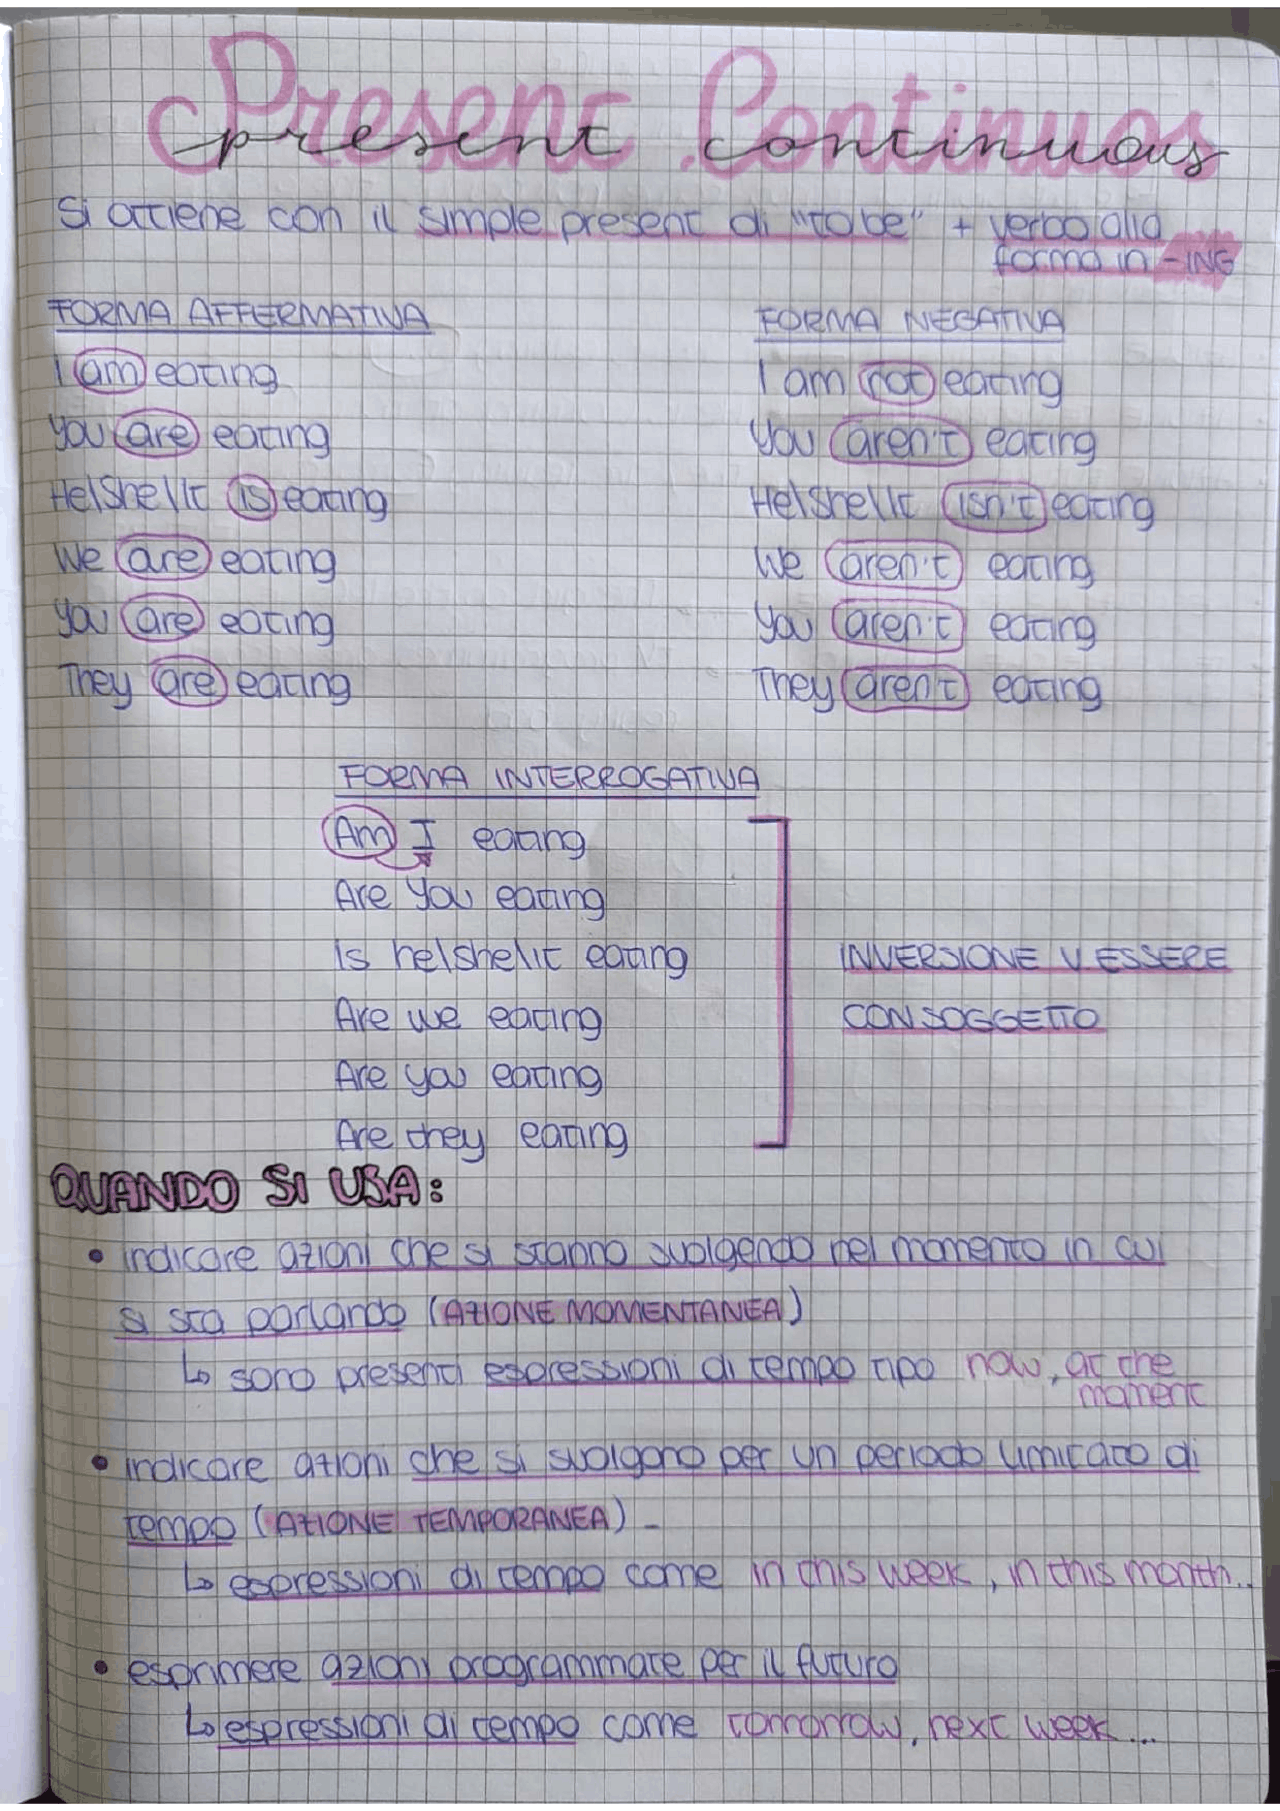 Present Continuos
present continuous
Si ottiene con il simple present di "to be" + verbo alla
forma in -ING
FORMA AFFERMATIVA
I am eating
You are eating
He/She/It is eating
We are eating
You are eating
They are eating
FORMA NEGATIVA
I am not eating
You aren't eating
He/She/It isn't eating
We aren't eating
You aren't eating
They aren't eating
FORMA INTERROGATIVA
Am I eating
Are you eating
Is he/she/it eating
Are we eating
Are you eating
Are they eating
INVERSIONE V. ESSERE
CON SOGGETTO
QUANDO SI USA:
• indicare azioni che si stanno svolgendo nel momento in cui
si sta parlando (AZIONE MOMENTANEA)
↳ sono presenti espressioni di tempo tipo now, at the
moment
• indicare azioni che si svolgono per un periodo limitato di
tempo (AZIONE TEMPORANEA)
↳ espressioni di tempo come in this week, in this month..
• esprimere azioni programmate per il futuro
↳ espressioni di tempo come tomorrow, next week...